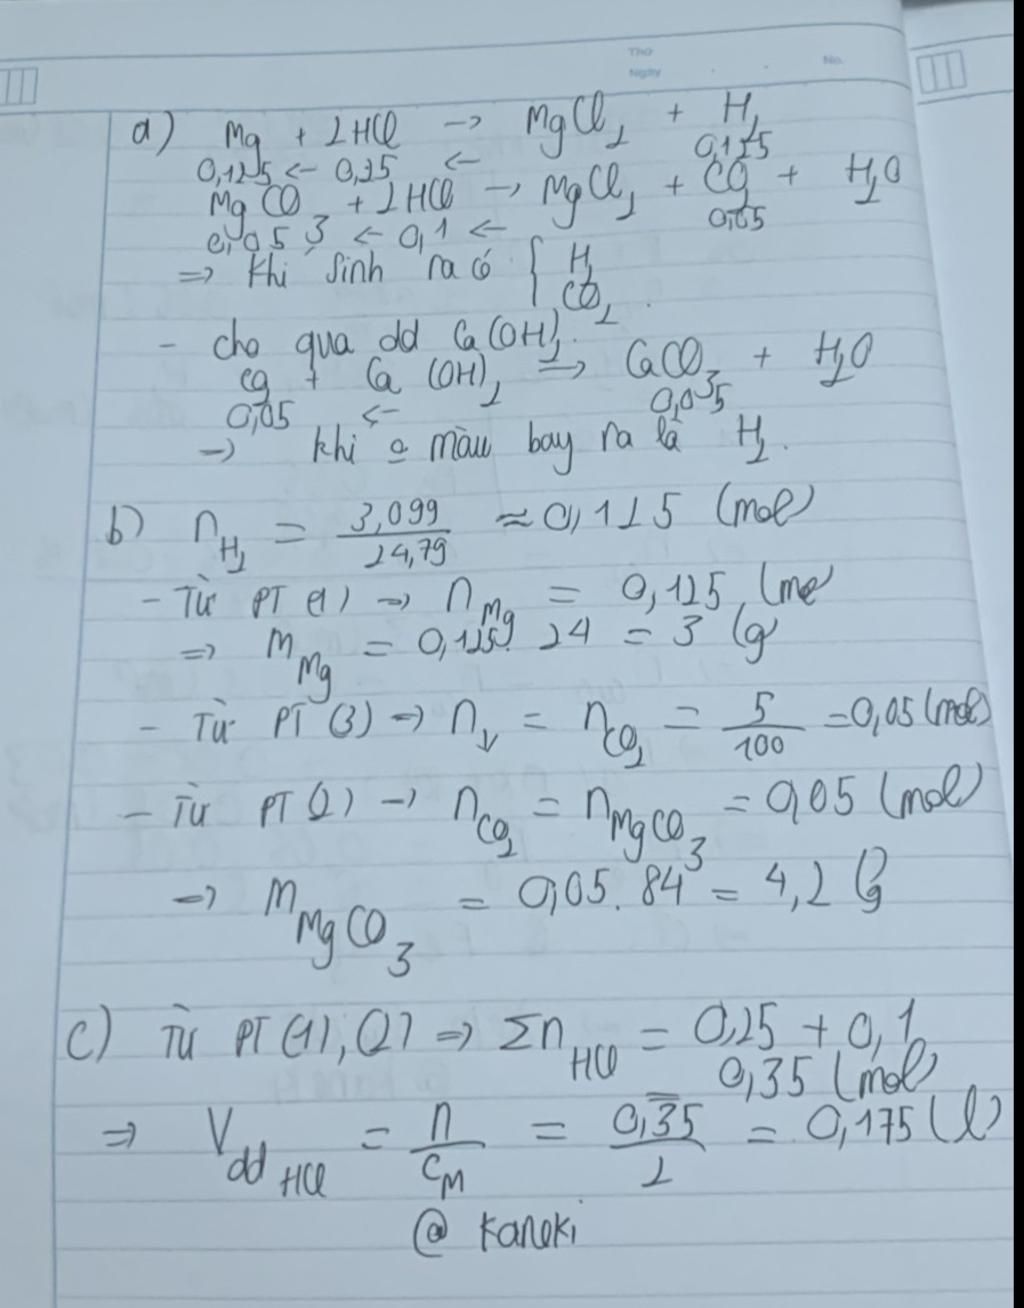 Thứ
Ngày
No.
a) Mg + 2HCl → MgCl₂ + H₂
0,125 ← 0,25 ← 0,125
MgCO₃ + 2HCl → MgCl₂ + CO₂ + H₂O
0,05 ← 0,1 ← 0,05
⇒ khí sinh ra có { H₂
CO₂.
- cho qua dd Ca(OH)₂.
CO₂ + Ca(OH)₂ ⇒ CaCO₃ + H₂O
0,05 ← 0,05
→ khí o màu bay ra là H₂.
b) n H₂ = 3,099 / 24,79 ≈ 0,125 (mol)
- Từ PT (1) → n Mg = 0,125 (mol
⇒ m Mg = 0,125. 24 = 3 (g
- Từ PT (3) → n↓ = n CO₂ = 5 / 100 = 0,05 (mol)
- Từ PT (2) → n CO₂ = n MgCO₃ = 0,05 (mol)
→ m MgCO₃ = 0,05. 84 = 4,2 (g
c) Từ PT (1), (2) ⇒ Σn HCl = 0,25 + 0,1
= 0,35 (mol)
⇒ V dd HCl = n / C_M = 0,35 / 2 = 0,175 (l)
@ Kaneki